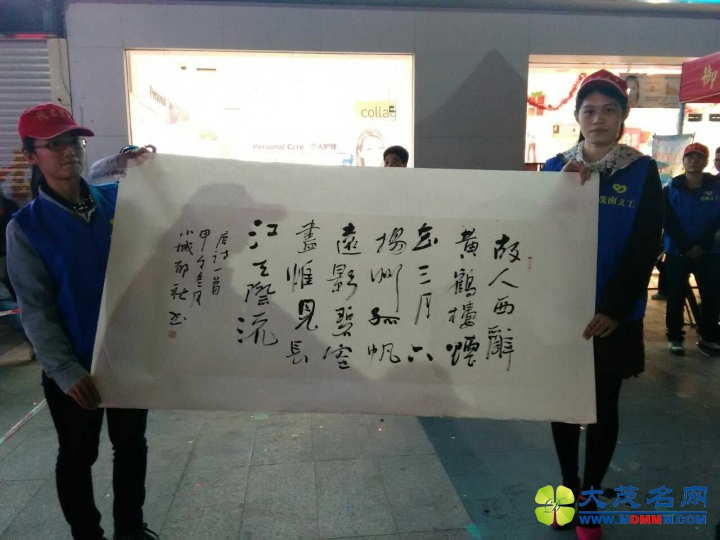 故人西辭
黃鶴樓煙
花三月下
揚州孤帆
遠影碧空
盡惟見長
江天際流
唐詩一首
甲午冬月
小城
collag
Personal Care 个人护理
Personal
御
茂南义工
大茂名网
www.MDMMM.com